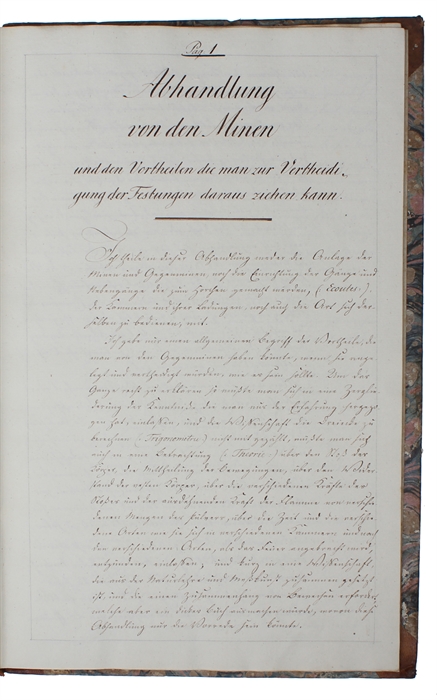 Pag. 1
Abhandlung
von den Minen
und den Vortheilen die man zur Vertheidi-
gung der Festungen daraus ziehen kann.
Ich theile in dieser Abhandlung weder die Anlage der
Minen und Gegenminen, noch die Einrichtung der Gänge und
Nebengänge die zum Horchen gemacht werden, (Ecoutes.)
der Kammern und ihrer Ladungen, noch auch die Art sich der-
selben zu bedienen, mit.
Ich gebe nur einen allgemeinen Begriff der Vortheile, die
man von den Gegenminen haben könnte, wenn sie ange-
legt und vertheidigt würden, wie es seyn sollte. Um das
Ganze recht zu erklären so müßte man sich in eine Zerglie-
derung der Kenntniße, die man aus der Erfahrung
hat, einlaßen, und die Wißenschaft die Dreiecke zu
berechnen (Trigonometrie) nicht mit gezählt, müßte man sich
auch in eine Betrachtung (Theorie) über den Stoß der
Körper, die Mittheilung der Bewegungen, über den Wider-
stand der festen Körper, über die verschiedenen Kräfte der
Stöße und der ausdehnenden Kraft der Flamme von verschie-
denen Mengen des Pulvers, über die Zeit und die verschie-
denen Arten wie sie sich in verschiedenen Kammern und nach
den verschiedenen Arten, als das Feuer angebracht wird,
entzünden, einlaßen; und kurz in eine Wißenschaft,
die aus der Naturlehre und Meßkunst zusammen gesetzt
ist, und die einen Zusammenhang von Beweisen erfordert,
welche aber ein dickes Buch ausmachen würde, wovon diese
Abhandlung nur die Vorrede sein könnte.